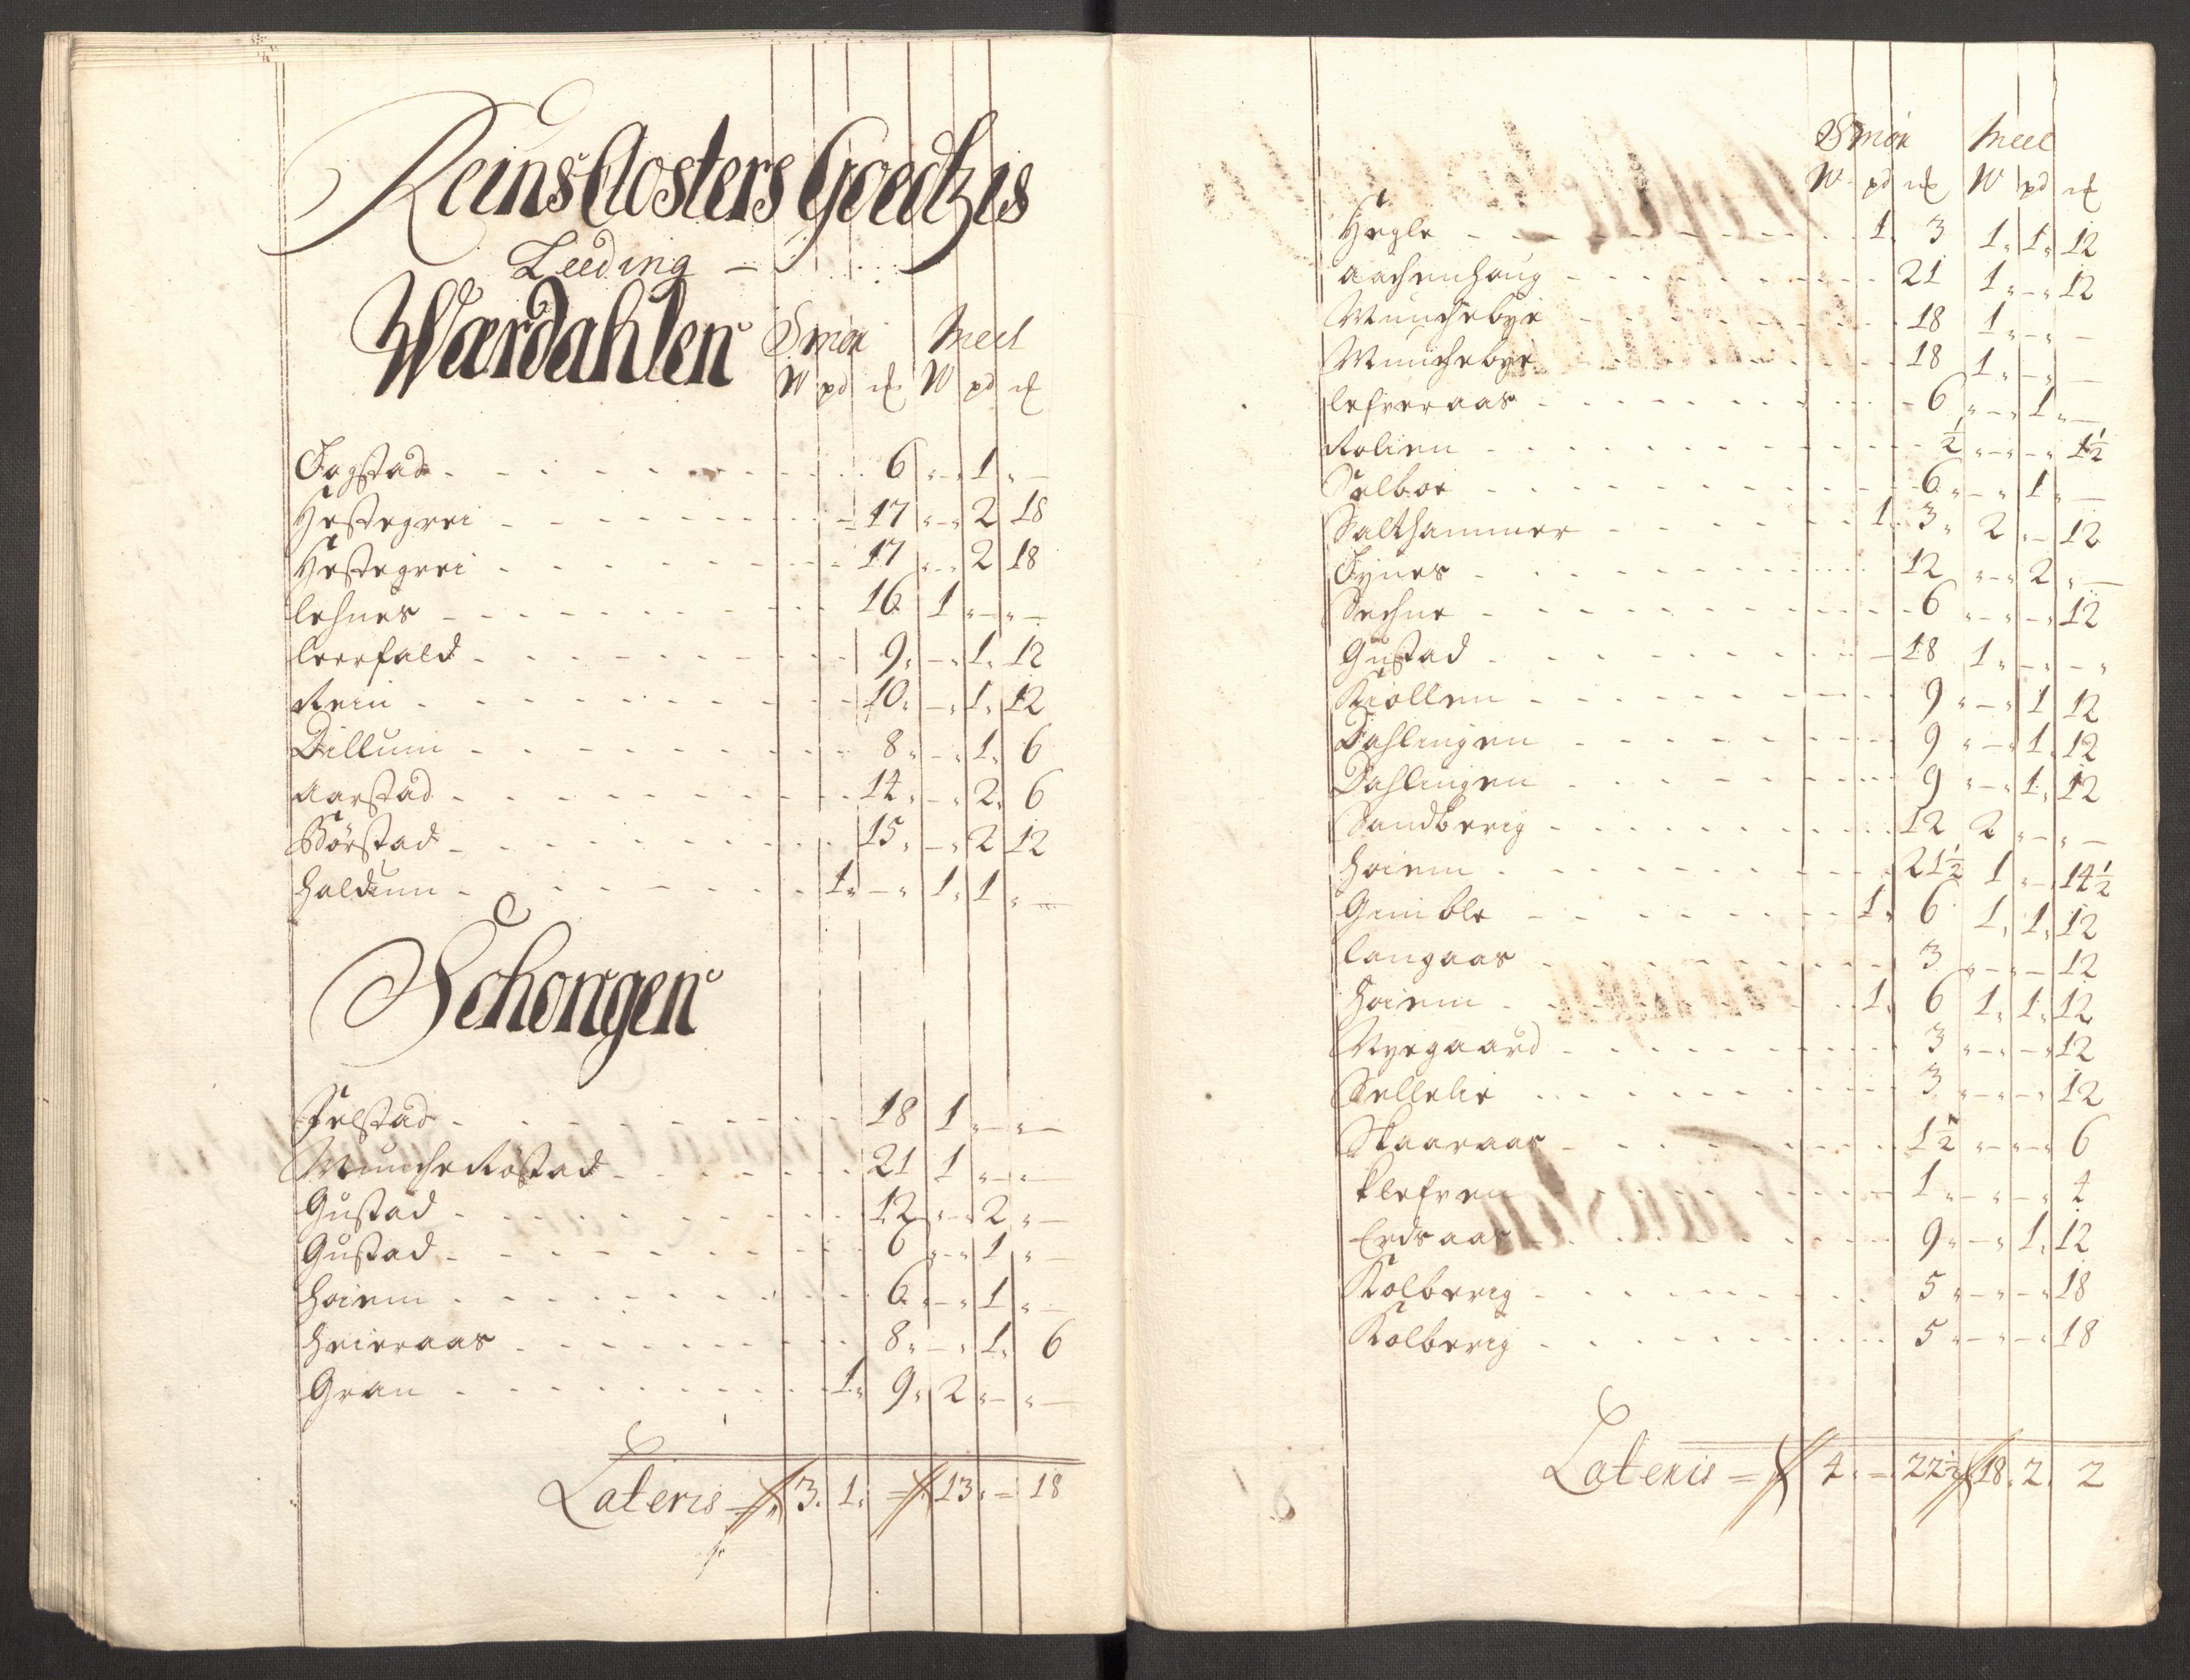 Reins Closters Goedtz is
Leeding —
Wærdahlen Smør Meel
W pd ℔ W pd ℔
Fagstad - - - 6 " - " 1 " -
Hestegrei - - - 17 " - " 2 18
Hestegrei - - - 17 " - " 2 18
Lehnes - - - 16 1 " - " -
Leerfald - - - 9 " - " 1 " 12
Rein - - - 10 " - " 1 " 12
Dillum - - - 8 " - " 1 " 6
Aarstad - - - 14 " - " 2 " 6
Børstad - - - 15 " - " 2 12
Haldum - - - 1 " - " 1 " 1 " -
Schongen
Felstad - - - 18 1 " - " -
Munche Rostad - - - 21 1 " - " -
Gustad - - - 12 " - " 2 " -
Gustad - - - 6 " - " 1 " -
Hoiem - - - 6 " - " 1 " -
Heieraas - - - 8 " - " 1 " 6
Gran - - - 1 " 9 " 2 " - " -
Lateris = 3. 1. = 13. = 18
Smør Meel
W pd ℔ W pd ℔
Hegle - - - 1. 3 1 " 1 " 12
Aachenhaug - - - 21 1 " - " 12
Munchebye - - - 18 1 " - " -
Munchebye - - - 18 1 " - " -
Lefveraas - - - 6 " - " 1 " -
Rolien - - - ½ " - " - " 1½
Selboe - - - 6 " - " 1 " -
Salthammer - - - 1. 3 " 2 " - 12
Fynes - - - 12 " - " 2 " -
Sechne - - - 6 " - " - " 12
Gustad - - - 18 1 " - " - "
Kiollen - - - 9 " - " 1 12
Dahlingen - - - 9 " - " 1. 12
Dahlingen - - - 9 " - " 1. 12
Sandberig - - - 12 2 " - " -
Hoiem - - - 21½ 1 " - " 14½
Gimble - - - 1. 6 1. 1. 12
Langaas - - - 3 " - " - 12
Hoiem - - - 1. 6 1. 1. 12
Nyegaard - - - 3 " - " - " 12
Sellelie - - - 3 " - " - " 12
Skaaraas - - - 1½ " - " - " 6
Klefven - - - 1 " - " - " 4
Erdsaas - - - 9 " - " 1. 12
Kolberig - - - 5 " - " - " 18
Kolberig - - - 5 " - " - " 18
Lateris = 4. = 22½ 18. 2. 2